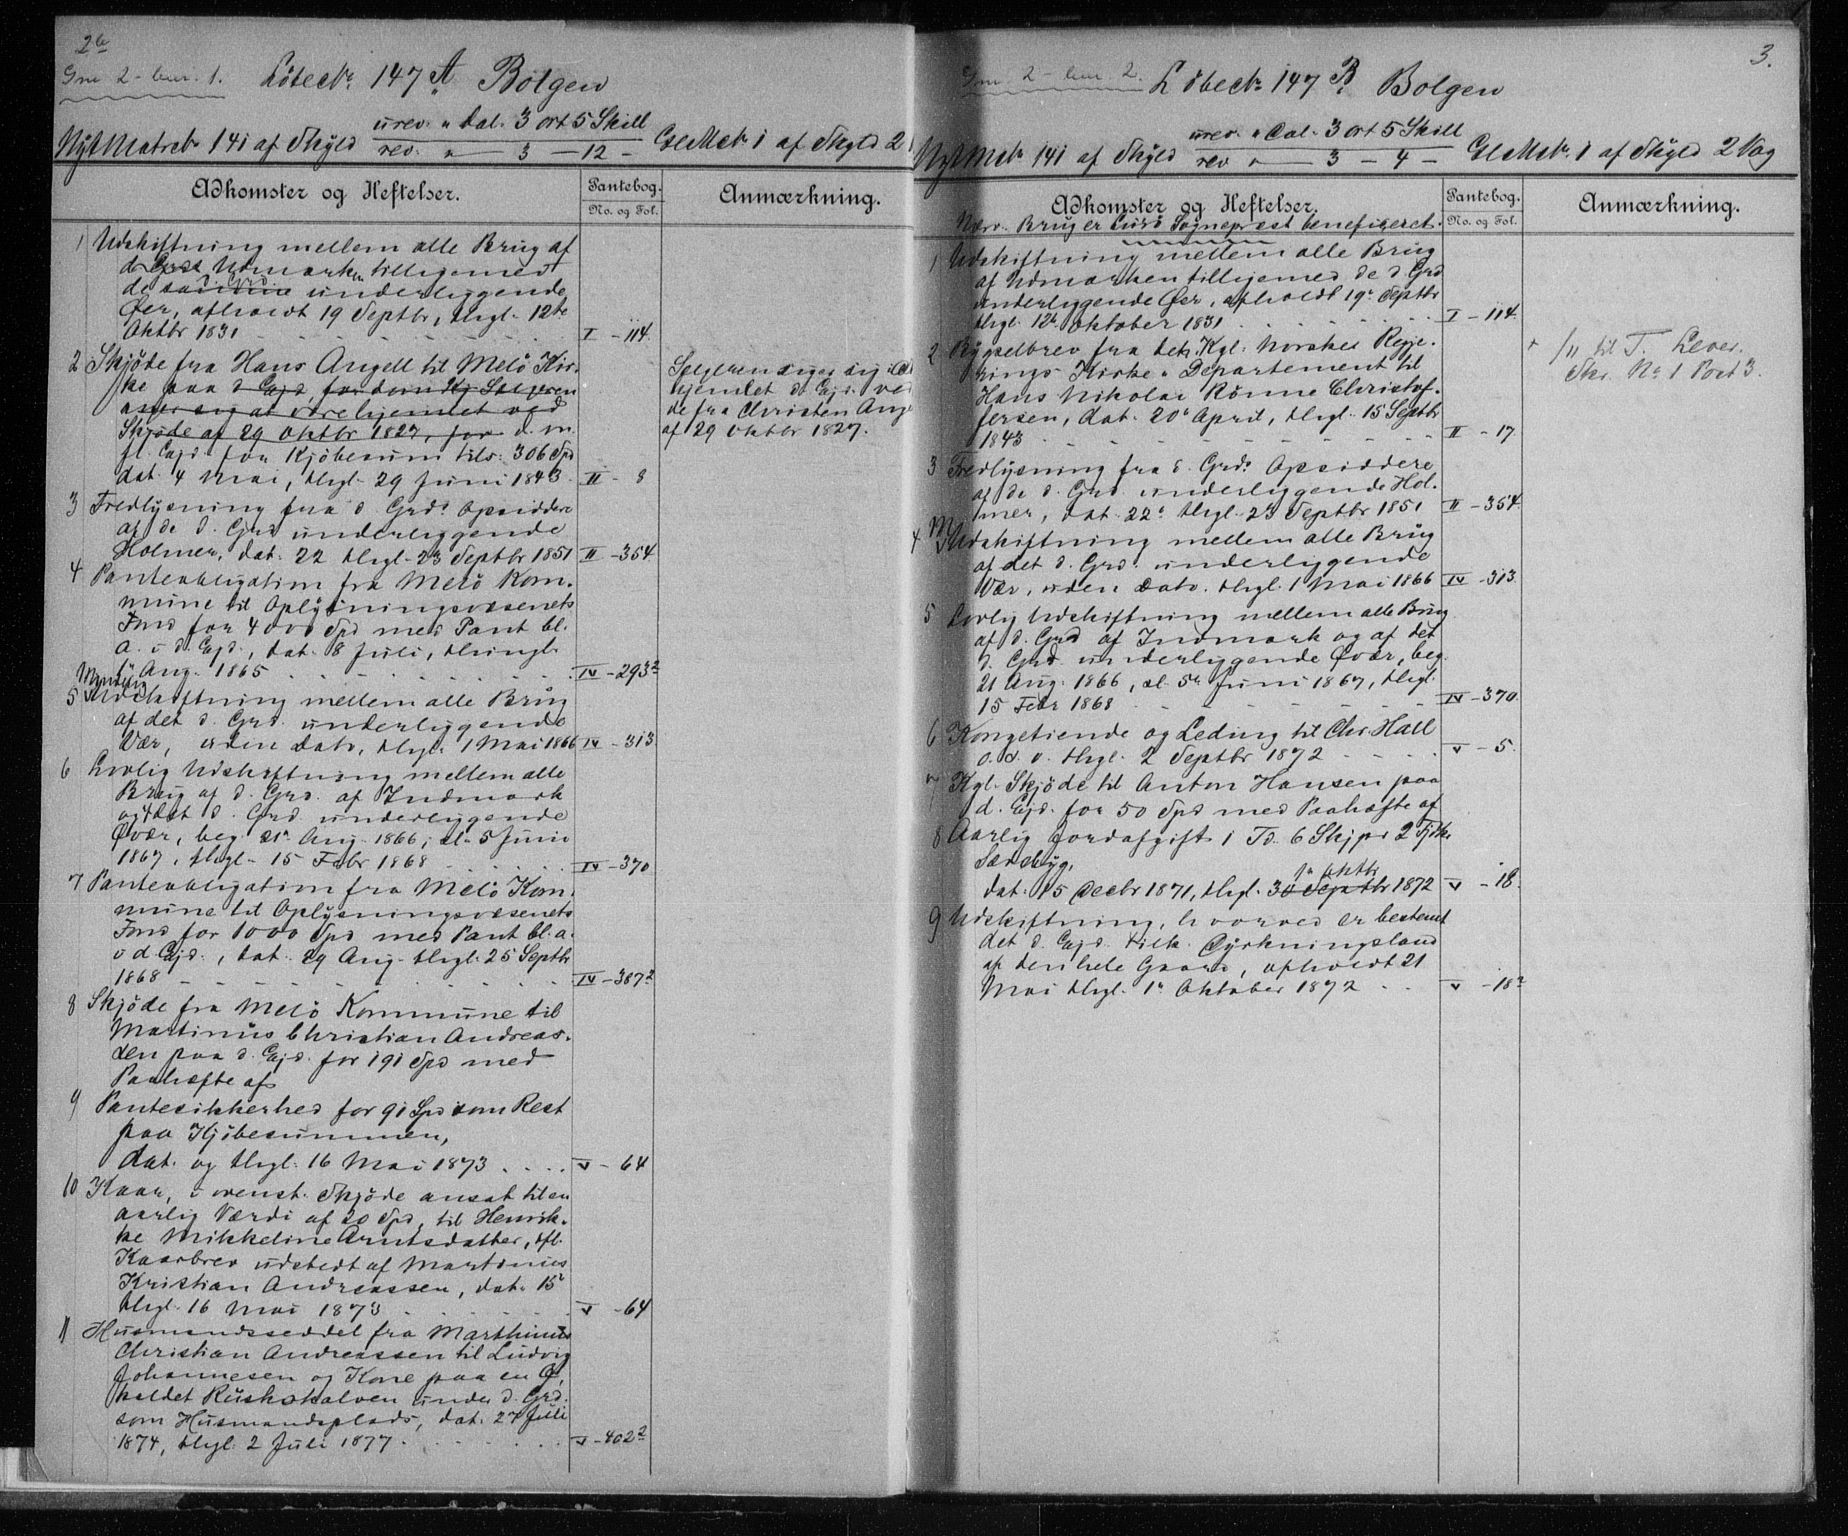 2b
Gnr 2 - bnr. 1. Löbenr 147 A Bolgen
urev. " Dal. 3 ort 5 Skill
Nyt Matrnr 141 af Skyld Gl Mtr. 1 af Skyld 2
rev. " — 3 — 12 -
Adkomster og Heftelser.
Pantebog.
No. og Fol.
Anmærkning.
1 Udskiftning mellem alle Brug af
d Grds Udmark tilligemed
de underliggende
Øer, afholdt 19 Septbr, thgl. 12te
Oktbr 1831 I - 114
2 Skjöde fra Hans Angell til Melö Kir-
ke paa d Ejd, for hvilken Selgeren
angir sig at være hjemlet ved
Skjöde af 29 Oktbr 1827, for d. m.
fl. Ejd. for Kjöbesum tils: 306 Spd
dat. 4 Mai, thgl. 29 Juni 1843 II - 8
Selgeren siger sig
hjemlet d Ejd. ved
de fra Christen Ang
af 29 Oktbr 1827.
3 Fredlysning fra d Grds Opsiddere
af de d. Grd underliggende
Holmer, dat. 22 thgl. 23 Septbr 1851 II - 354
4 Panteobligation fra Melö Kom-
mune til Oplysningsvæsenets
Fond for 4000 Spd med Pant bl.
a. i d. Ejd., dat. 8 Juli, thingl.
Aug. 1865 IV - 293²
5 Udskiftning mellem alle Brug
af det d. Grd. underliggende
Vær, uden Dato, thgl. 1 Mai 1866 IV - 313
6 Lovlig Udskiftning mellem alle
Brug af d. Grd. af Indmark
og det d. Grd underliggende
Øvær, beg. 21r Aug. 1866, sl. 5 Juni
1867, thgl. 15 Febr 1868 IV - 370
7 Panteobligation fra Melö Kom-
mune til Oplysningsvæsenets
Fond for 1000 Spd med Pant bl. a.
i d Ejd., dat. 29 Aug. thgl. 25 Septbr
1868 IV - 387²
8 Skjöde fra Melö Kommune til
Martinus Christian Andreas-
sen paa d. Ejd. for 191 Spd med
Paahæfte af
9 Pantesikkerhed for 91 Spd som Rest
paa Kjöbesummen,
dat. og thgl. 16 Mai 1873 V - 64
10 Kaar, i ovenst. Skjöde ansat til en
aarlig Værdi af 20 Spd, til Henrik-
ke Mikkeline Arntsdatter, ifl.
Kaarbrev udstedt af Martinus
Kristian Andreassen, dat. 15r
thgl. 16 Mai 1873 V - 64
11 Husmandsseddel fra Marthinus
Christian Andreassen til Ludvig
Johannesen og Kone paa en Ø,
kaldet Rushskalven under d. Grd.
som Husmandsplads, dat. 27 Juli
1874, thgl. 2 Juli 1877. V - 402²
3.
Gnr. 2 - bnr 2. Löbenr 147 B. Bolgen
urev. " Dal. 3 ort 5 Skill
Nyt Mtr 141 af Skyld Gl Mtr. 1 af Skyld 2 Vog
rev " — 3 — 4 -
Adkomster og Heftelser.
Pantebog.
No. og Fol.
Anmærkning.
Nærv. Brug er Lurö Sogneprest beneficeret.
1 Udskiftning mellem alle Brug
af Udmarken tilligemed de d. Grd
underliggende Øer, afholdt 19r Septbr
thgl. 12te Oktober 1831 I - 114.
2 Bygselbrev fra det Kgl. Norske Regje-
rings Kirke-Departement til
Hans Nikolai Rönne Christof-
fersen, dat. 20r April, thgl. 15 Septbr
1843 II - 17
+ f/n til T. Lever.
Skr. No 1 Post 3.
3 Fredlysning fra d. Grds Opsiddere
af de d. Grd. underliggende Hol-
mer, dat. 22r thgl. 23 Septbr 1851 II - 354
4 Udskiftning mellem alle Brug
af det d. Grd. underliggende
Vær, uden Dato. thgl. 1 Mai 1866 IV - 313
5 Lovlig Udskiftning mellem alle Brug
af d. Grd af Indmark og af det
d. Grd. underliggende Øvær, beg.
21 Aug. 1866, sl. 5r Juni 1867, thgl.
15 Febr 1868 IV - 370.
6 Kongetiende og Leding til Chr. Hall
o. d. v. thgl. 2 Septbr 1872 V - 5.
7 Kgl. Skjöde til Anton Hansen paa
d. Ejd. for 50 Spd med Paahæfte af
8 Aarlig Jordafgift 1 Td. 6 Skjpr 2 Fjdk.
Sædebyg,
1r Oktbr
dat. 15 Decbr 1871, thgl. 30 Septbr 1872 V - 18.
9 Udskiftning, hvorved er bestemt
det d. Ejd. tilk. Dyrkningsland
af den hele Gaard, afholdt 21
Mai thgl. 1r Oktober 1872 V - 18²